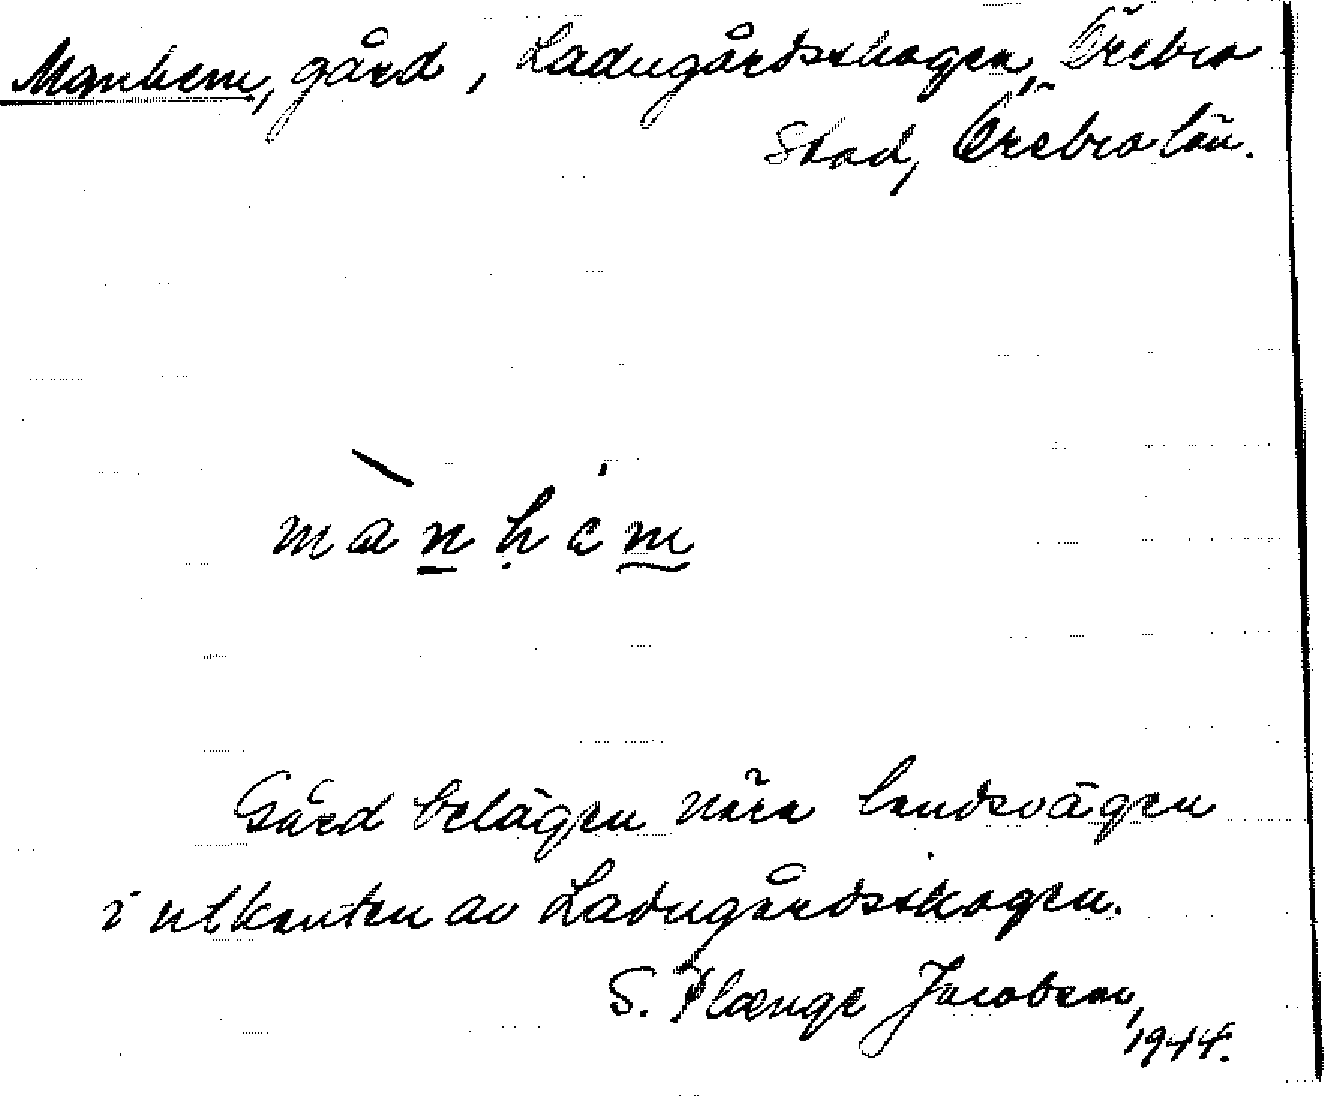 Manhem, gård, Ladugårdsskogen, Örebro
Stad, Örebro län.
mànhèm
Gård belägen nära landsvägen
i utkanten av Ladugårdsskogen.
S. Plænge Jacobson,
1944.